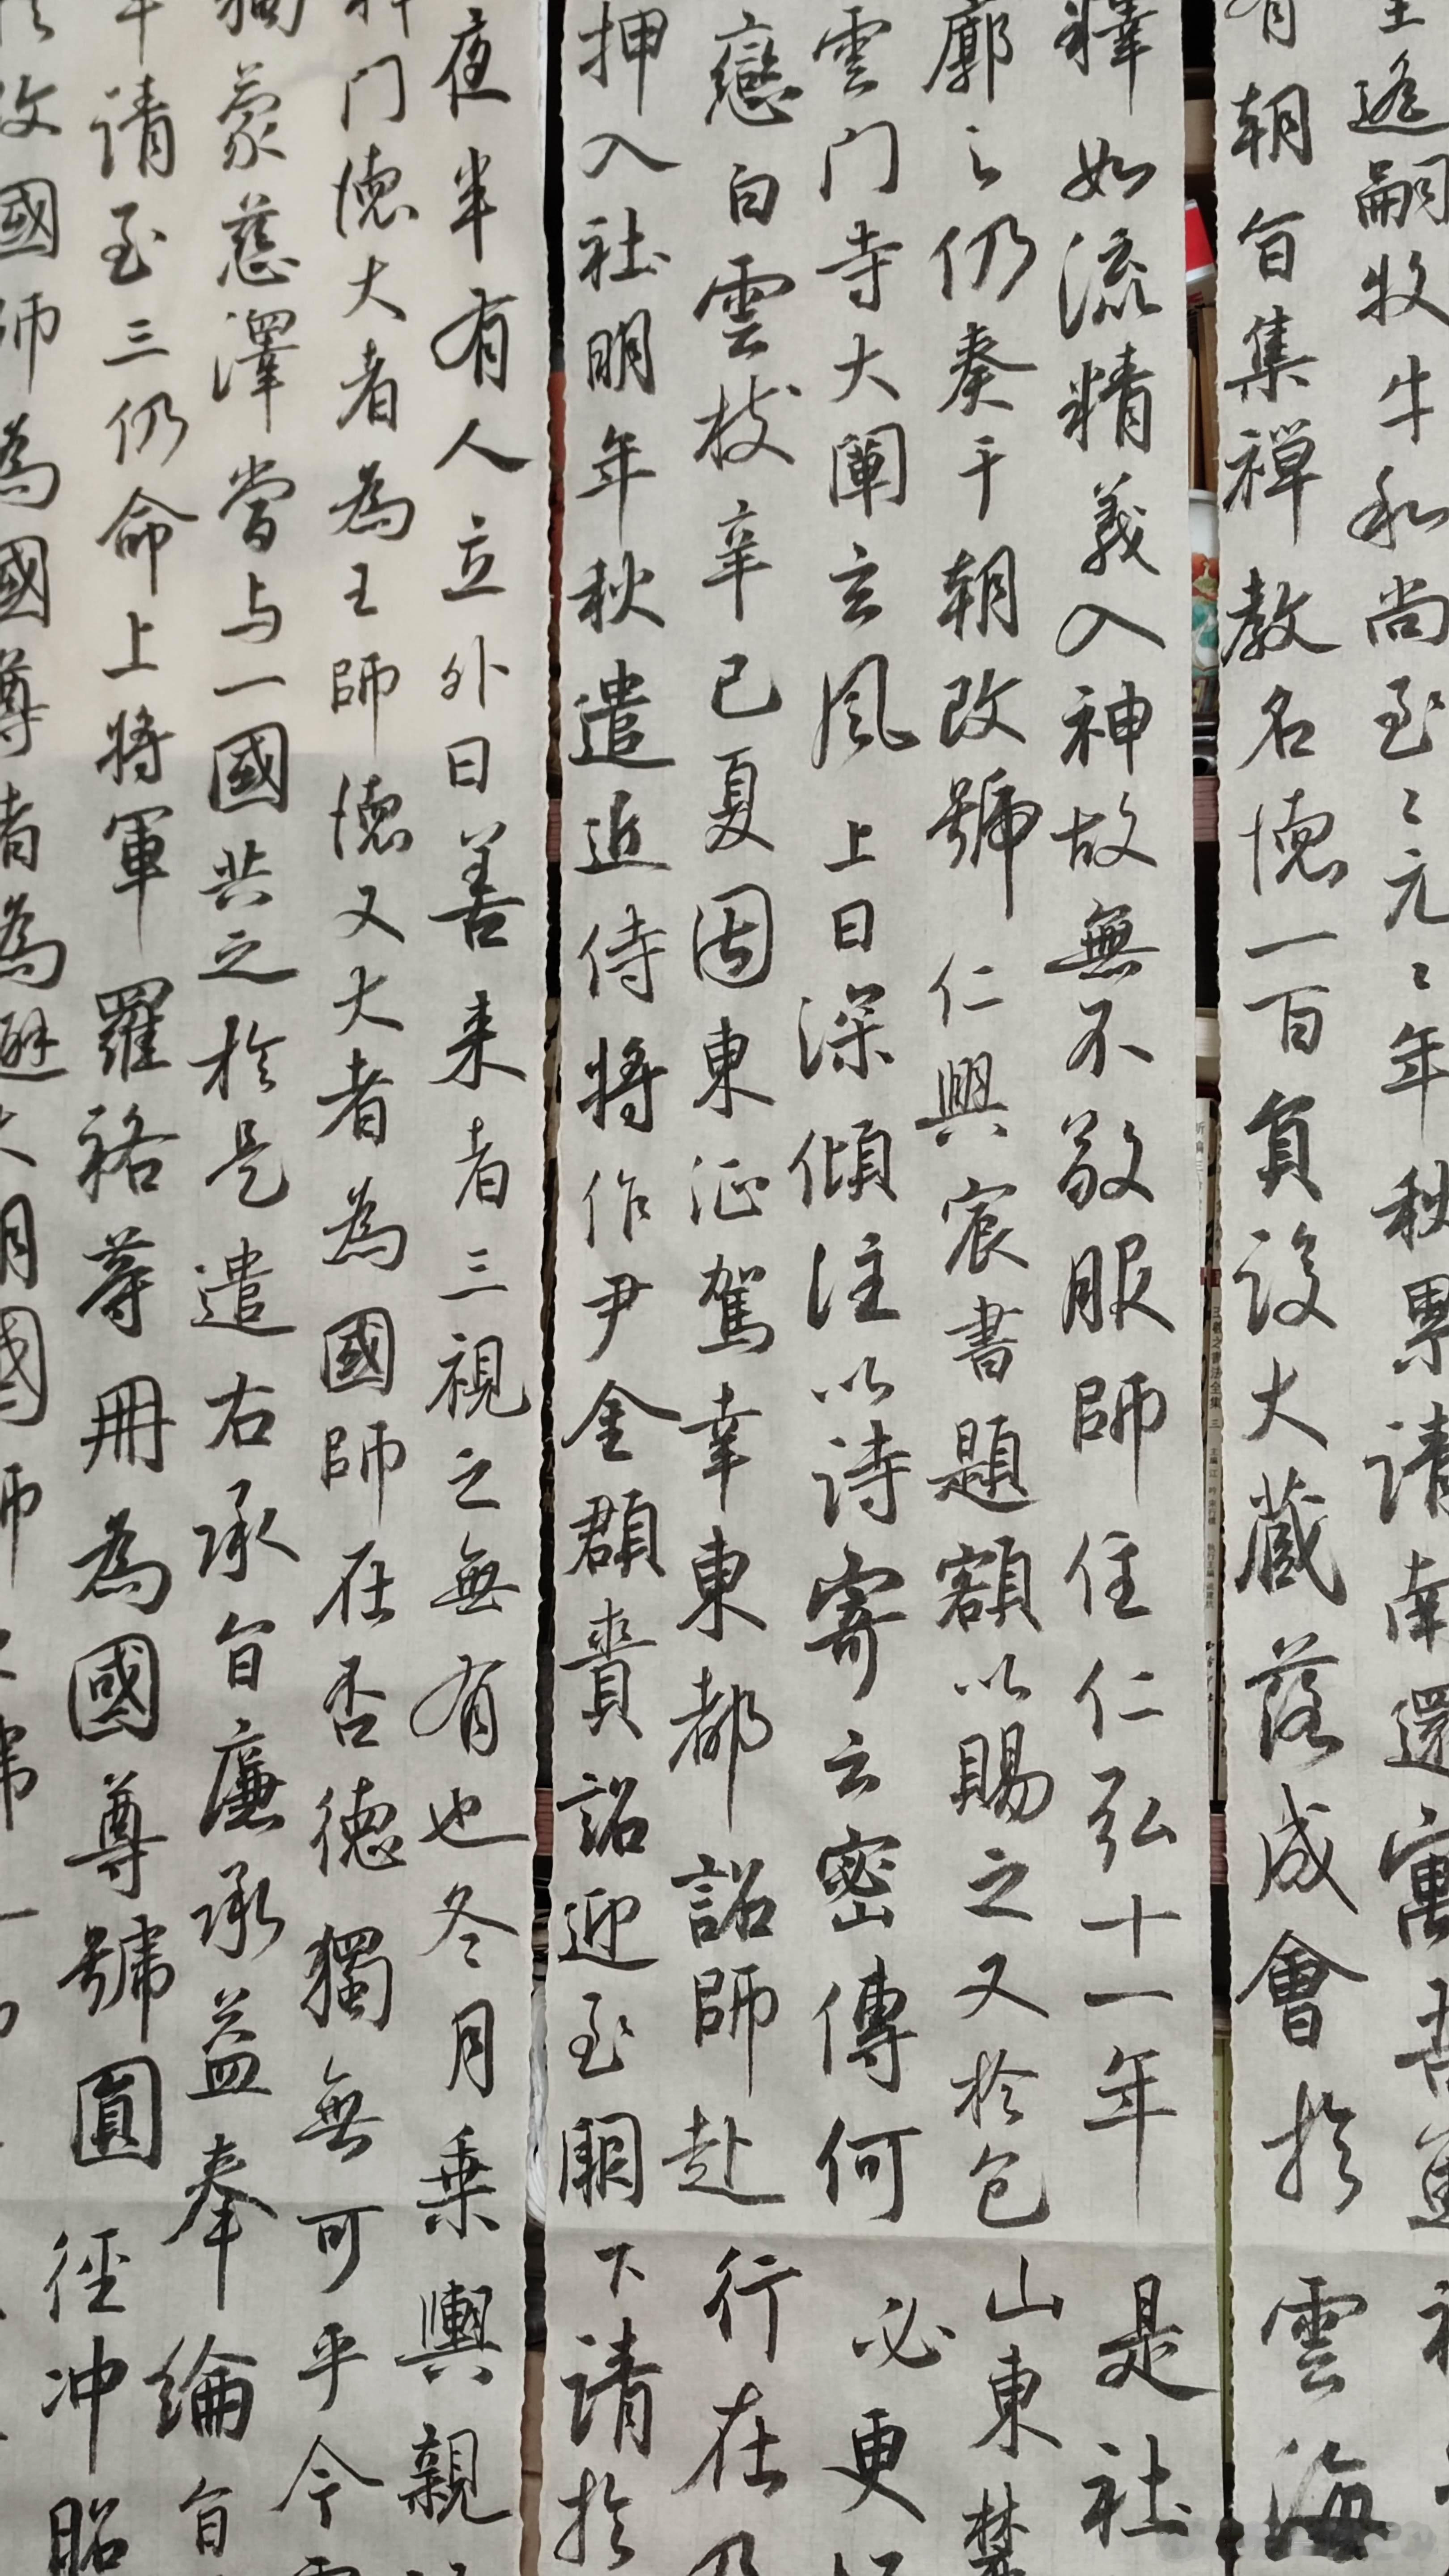 遙嗣牧牛和尚至〻元〻年秋累請南還寓吾
朝旨集禅教名德一百員設大蔵落成會扵雲海
釋如流精義入神故無不敬服師住仁弘十一年是社
廓之仍奏于朝改號仁興宸書題額以賜之又扵包山東禁
雲门寺大闡玄風上日深傾注以诗寄云密傳何必更
戀白雲枝辛已夏因東征駕幸東都詔師赴行在乃
押入社明年秋遣近侍将作尹金頵賫詔迎至闕下请扵
夜半有人立外曰善来者三視之無有也冬月乗輿親
门德大者為王師德又大者為國師在否德獨無可乎今
蒙慈澤當与一國共之扵是遣右承旨廉承益奉綸旨
请至三仍命上将軍羅裕等冊為國尊號圓徑冲昭
改國師為國尊者為避大朝國師